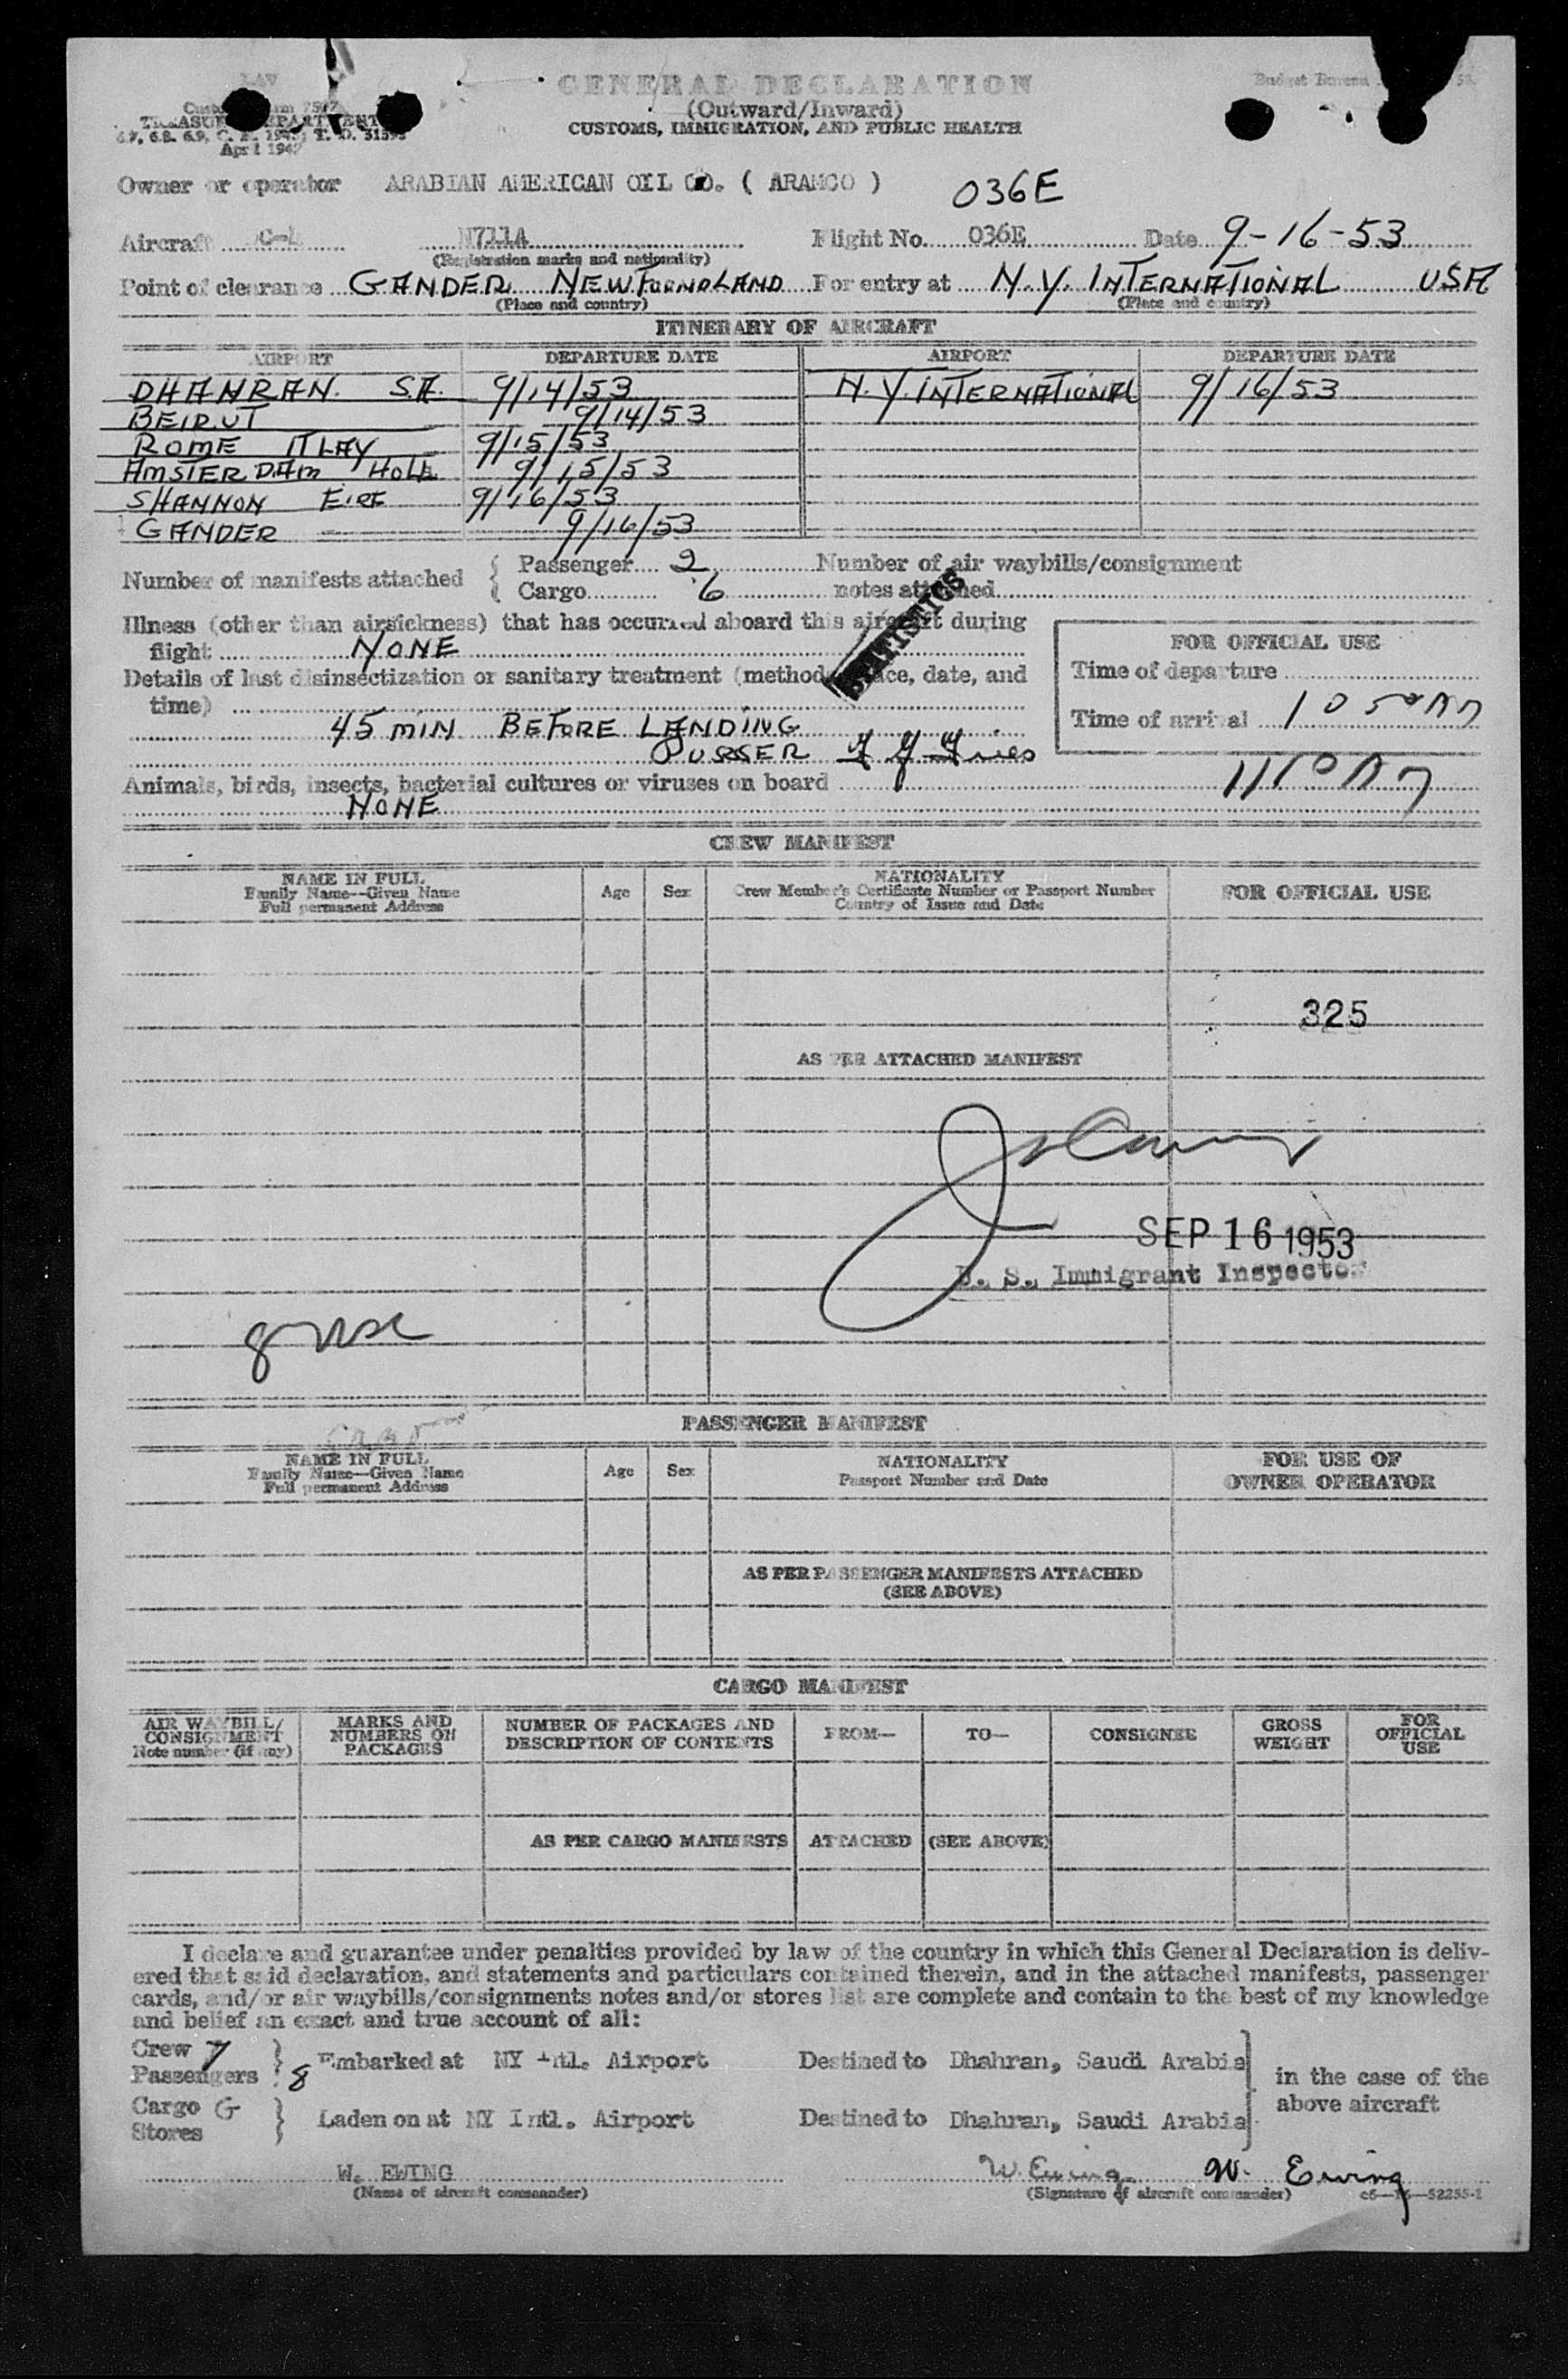 GENERAL DECLARATION
(Outward/Inward)
CUSTOMS, IMMIGRATION, AND PUBLIC HEALTH
Budget Bureau
TREASURY DEPARTMENT
April 1947
Owner or operator ARABIAN AMERICAN OIL CO. ( ARAMCO ) 036E
Aircraft N711A Flight No. 036E Date 9-16-53
(Registration marks and nationality)
Point of clearance GANDER NEWFOUNDLAND For entry at N.Y. INTERNATIONAL USA
(Place and country) (Place and country)
ITINERARY OF AIRCRAFT
AIRPORT DEPARTURE DATE AIRPORT DEPARTURE DATE
DHAHRAN. SA. 9/14/53 N.Y. INTERNATIONAL 9/16/53
BEIRUT 9/14/53
ROME ITLAY 9/15/53
AMSTERDAM HOLL 9/15/53
SHANNON EIRE 9/16/53
GANDER 9/16/53
Number of manifests attached { Passenger 2 Number of air waybills/consignment
Cargo 6 notes attached
STATISTICS
Illness (other than airsickness) that has occurred aboard this aircraft during
flight NONE
Details of last disinsectization or sanitary treatment (method, place, date, and
time)
45 MIN BEFORE LANDING
PURSER
FOR OFFICIAL USE
Time of departure
Time of arrival 1050AM
1110AM
Animals, birds, insects, bacterial cultures or viruses on board
NONE
CREW MANIFEST
NAME IN FULL Age Sex NATIONALITY FOR OFFICIAL USE
Family Name—Given Name Crew Member's Certificate Number or Passport Number
Full permanent Address Country of Issue and Date
325
AS PER ATTACHED MANIFEST
SEP 16 1953
U. S. Immigrant Inspector
PASSENGER MANIFEST
NAME IN FULL Age Sex NATIONALITY FOR USE OF
Family Name—Given Name Passport Number and Date OWNER OPERATOR
Full permanent Address
AS PER PASSENGER MANIFESTS ATTACHED
(SEE ABOVE)
CARGO MANIFEST
AIR WAYBILL/ MARKS AND NUMBER OF PACKAGES AND FROM— TO— CONSIGNEE GROSS FOR
CONSIGNMENT NUMBERS ON DESCRIPTION OF CONTENTS WEIGHT OFFICIAL
Note number (if any) PACKAGES USE
AS PER CARGO MANIFESTS ATTACHED (SEE ABOVE)
I declare and guarantee under penalties provided by law of the country in which this General Declaration is deliv-
ered that said declaration, and statements and particulars contained therein, and in the attached manifests, passenger
cards, and/or air waybills/consignments notes and/or stores list are complete and contain to the best of my knowledge
and belief an exact and true account of all:
Crew 7
Passengers 8 } Embarked at NY Intl. Airport Destined to Dhahran, Saudi Arabia
in the case of the
above aircraft
Cargo G
Stores } Laden on at NY Intl. Airport Destined to Dhahran, Saudi Arabia
W. EWING W. Ewing W. Ewing
(Name of aircraft commander) (Signature of aircraft commander)